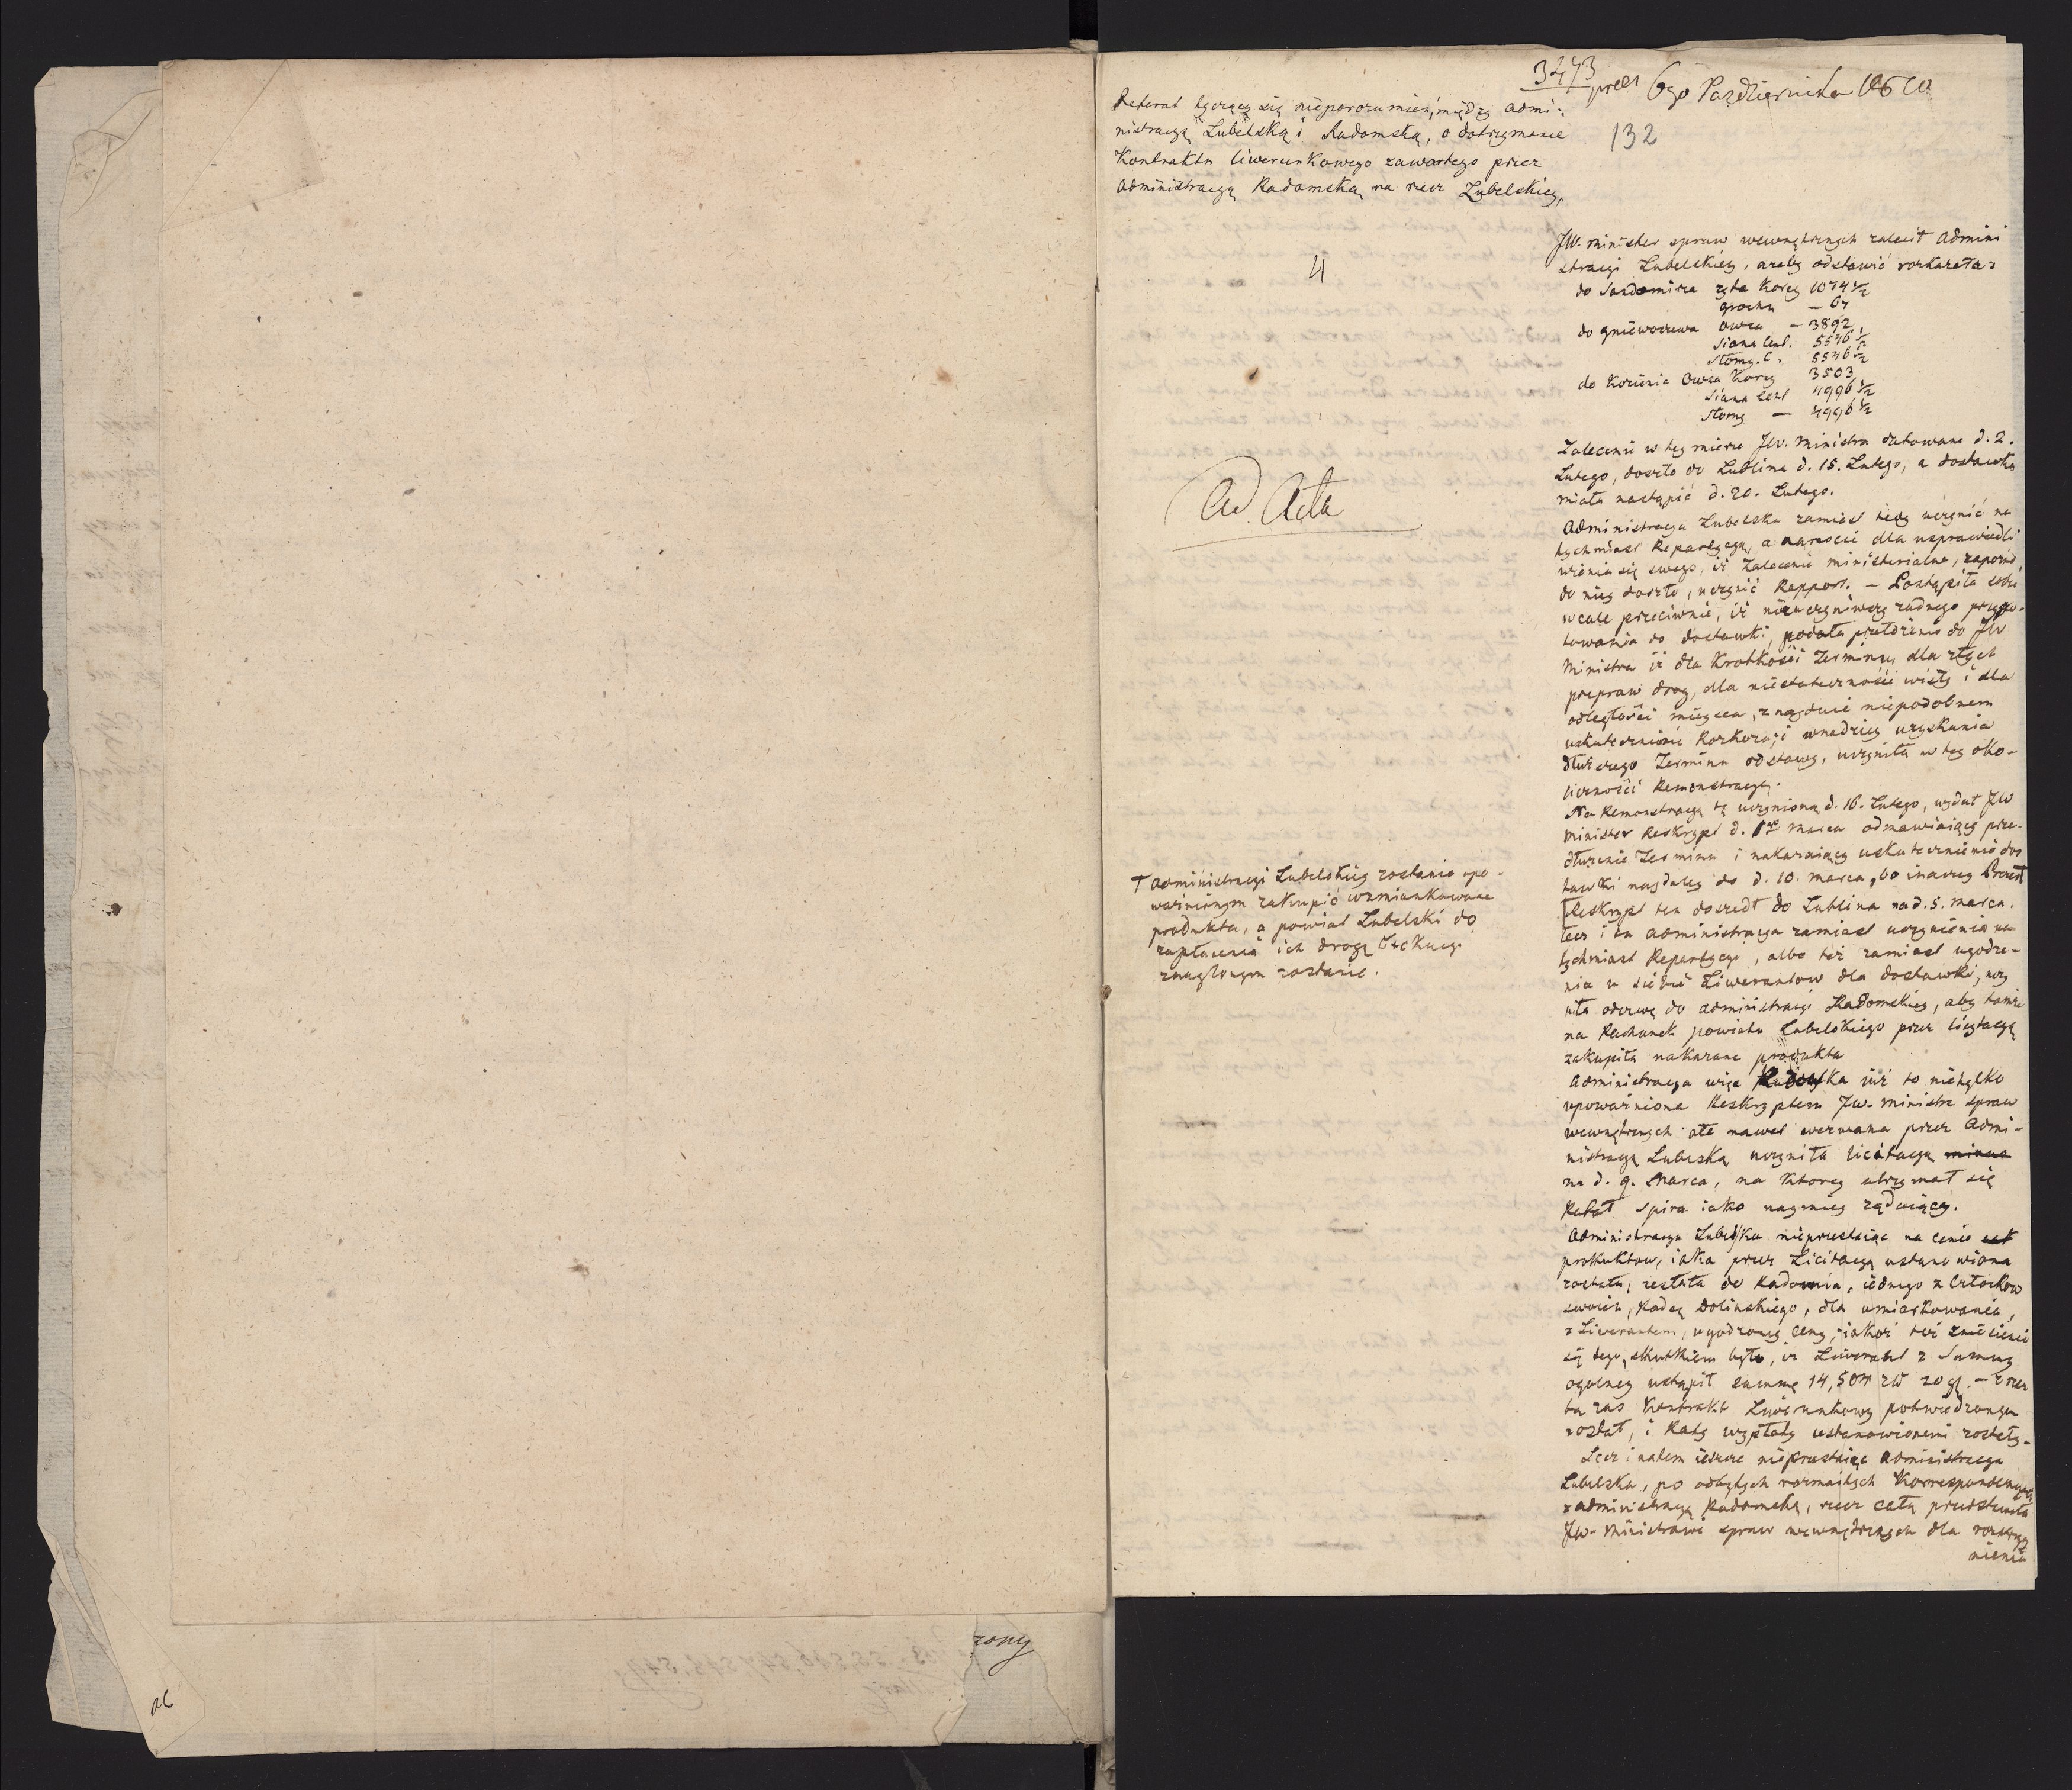 3473 pres 6go Pazdziernika 1810
132
Referat tyczący się nieporozumień, między admi-
nistracyą Lubelską i Radomską, o dotrzymanie
Kontraktu liwerunkowego zawartego przez
administracyą Radomską na rzecz Lubelskiey,
4
Ad Acta
JW. minister spraw wewnętrznych zalecił admini
stracyi Lubelskiey, ażeby odstawić rozkazała:
do Sandomirza żyta Korcy 1074 1/2
grochu — 67
do gniewoszewa owsa — 3892
Siana Cent. 5546 1/2
Słomy. C. 5546 1/2
do Kozienic Owsa Korcy 3503
Siana Cent 4996 1/2
Słomy — 4996 1/2
Zalecenie w tey mierze JW. Ministra datowane d. 2.
Lutego, doszło do Lublina d. 15. Lutego, a dostawka
miała nastąpić d. 20. Lutego.
Administracya Lubelska zamiast tedy uczynić na
tychmiast Repartycyą, a nareście dla usprawiedli
wienia się swego, iż Zalecenie ministerialne, zapozno
do niey doszło, uczynić Rapport. — Postąpiła sobie
wcale przeciwnie, iż nieuczyniwszy żadnego przygo-
towania do dostawki, podała przełożenie do JW
Ministra iż dla Krotkości Terminu, dla złych
przepraw drog, dla niestateczności wisły i dla
odległości mieysca, znayduie niepodobnem
uskutecznienie Rozkazu; i wnadziey uzyskania
dłuższego Terminu odstawy, uczyniła w tey oko-
liczności Remonstracyą.
Na Remonstracyą tę uczynioną d. 16. Lutego, wydał JW
Minister Reskrypt d. 1go marca odmawiaiący prze-
dłużenie Terminu i nakazuiący uskutecznienie dos
tawki naydaley do d. 10. marca, bo inaczey
Reskrypt ten doszedł do Lublina na d. 5. marca.
lecz i tu administracya zamiast uczynienia na-
tychmiast Repartycyi, albo też zamiast ugodze-
nia u siebie Liwerantow dla dostawki, uczy
niła odezwę do administracyi Radomskiey, aby tamże
na Rachunek powiatu Lubelskiego przez licytacyą
zakupiła nakazane produkta
Administracya więc Radomska iuż to nietylko
upoważniona Reskryptem JW. Ministra spraw
wewnętrznych ale nawet wezwana przez Admi-
nistracyą Lubelską uczyniła licitacyą
na d. 9. Marca, na Ktorey utrzymał się
Rafał Spira iako naymniey żądaiący.
Administracya Lubelska nieprzestaiąc na cenie
produktow, iaka przez Licitacyą ustanowiona
została, zesłała do Radomia, iednego z Członkow
swoich, Radcę Dolinskiego, dla umiarkowania,
z Liwerantem, ugodzoney Ceny, iakoż też zniesienia
się tego, skutkiem było, iż Liwerant z Summy
ogolney ustąpił summę 14,507 zł 20 gl. — Przez
to zas Kontrakt Liwerunkowy potwierdzonym
został, i Raty wypłaty ustanowionemi zostały.
Lecz i natem ieszcze nieprzestaiąc Administracya
Lubelska, po odbytych rozmaitych Korrespondencyach
z administracyą Radomską, rzecz całą przedstawiła
JW. Ministrowi spraw wewnętrznych dla rozstrzyg
nienia
† administracyi Lubelskiey zostanie upo-
ważnionym zakupić wzmiankowane
produkta, a powiat Lubelski do
zapłacenia ich drogą Exekucyi
znaglonym zostanie.
rony